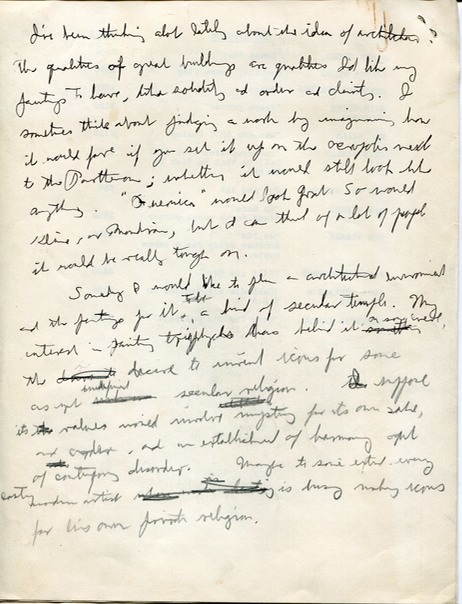 I've been thinking alot lately about the idea of architecture.
The qualities of great buildings are qualities I'd like my
paintings to have, like solidity and order and clarity. I
sometimes think about judging a work by imagining how
it would fare if you set it up on the acropolis next
to the Parthenon; whether it would still look like
anything. "Guernica" would look great. So would
Kline, or Mondrian, but I can think of a lot of people
it would be really tough on.
Someday I would like to plan a architectural environment
and the paintings for it, a kind of secular temple. My
interest in painting triptychs has behind it in some
the desire to invent icons for some
as yet secular religion. I suppose
its values would involve mystery for its own sake,
and an of harmony out
of contemporary disorder. Maybe to some extent every
modern artist is busy making icons
for his own private religion.